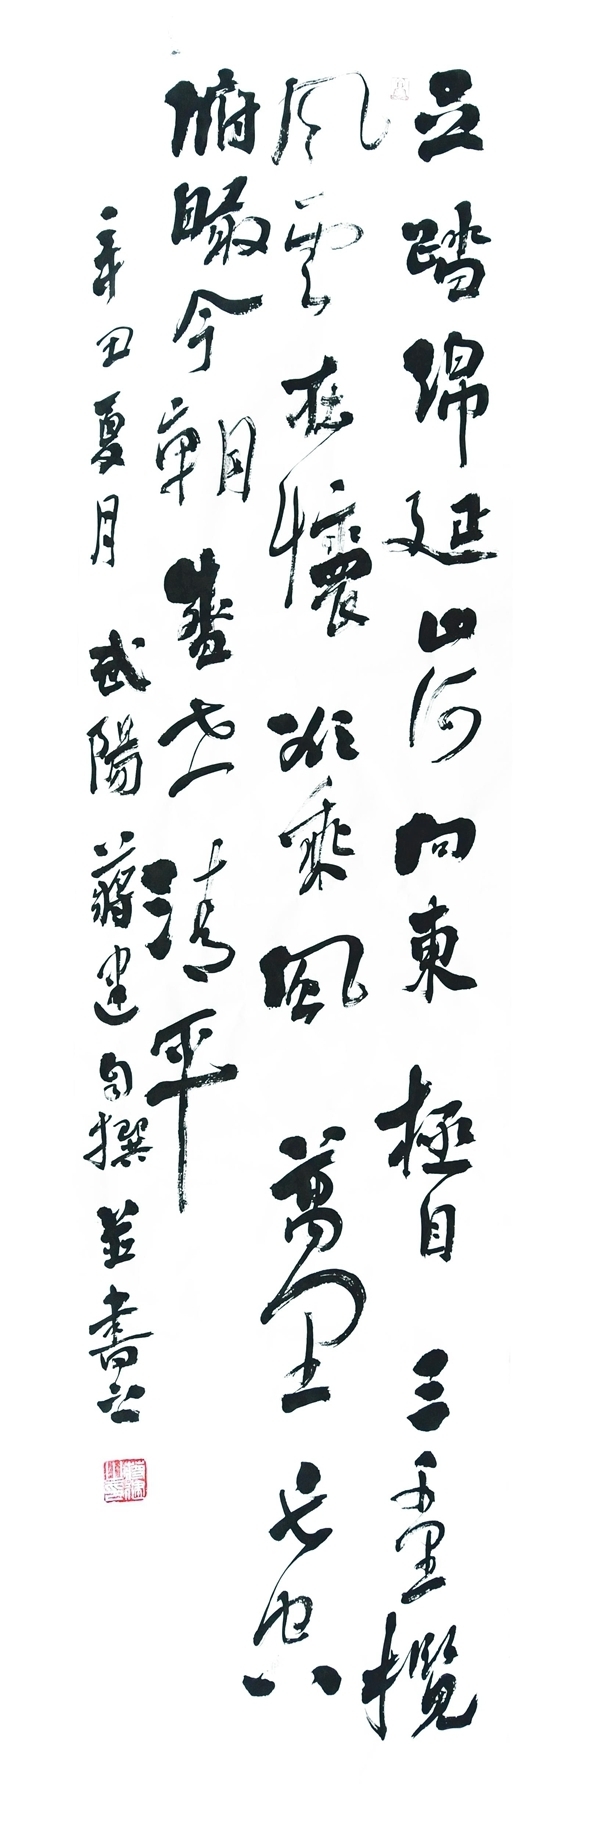 足踏綿延山河向東極目三千里攬
風雲在懷乘風萬里長空
俯瞰今朝盛世清平
辛丑夏月武陽蔣建自撰並書之